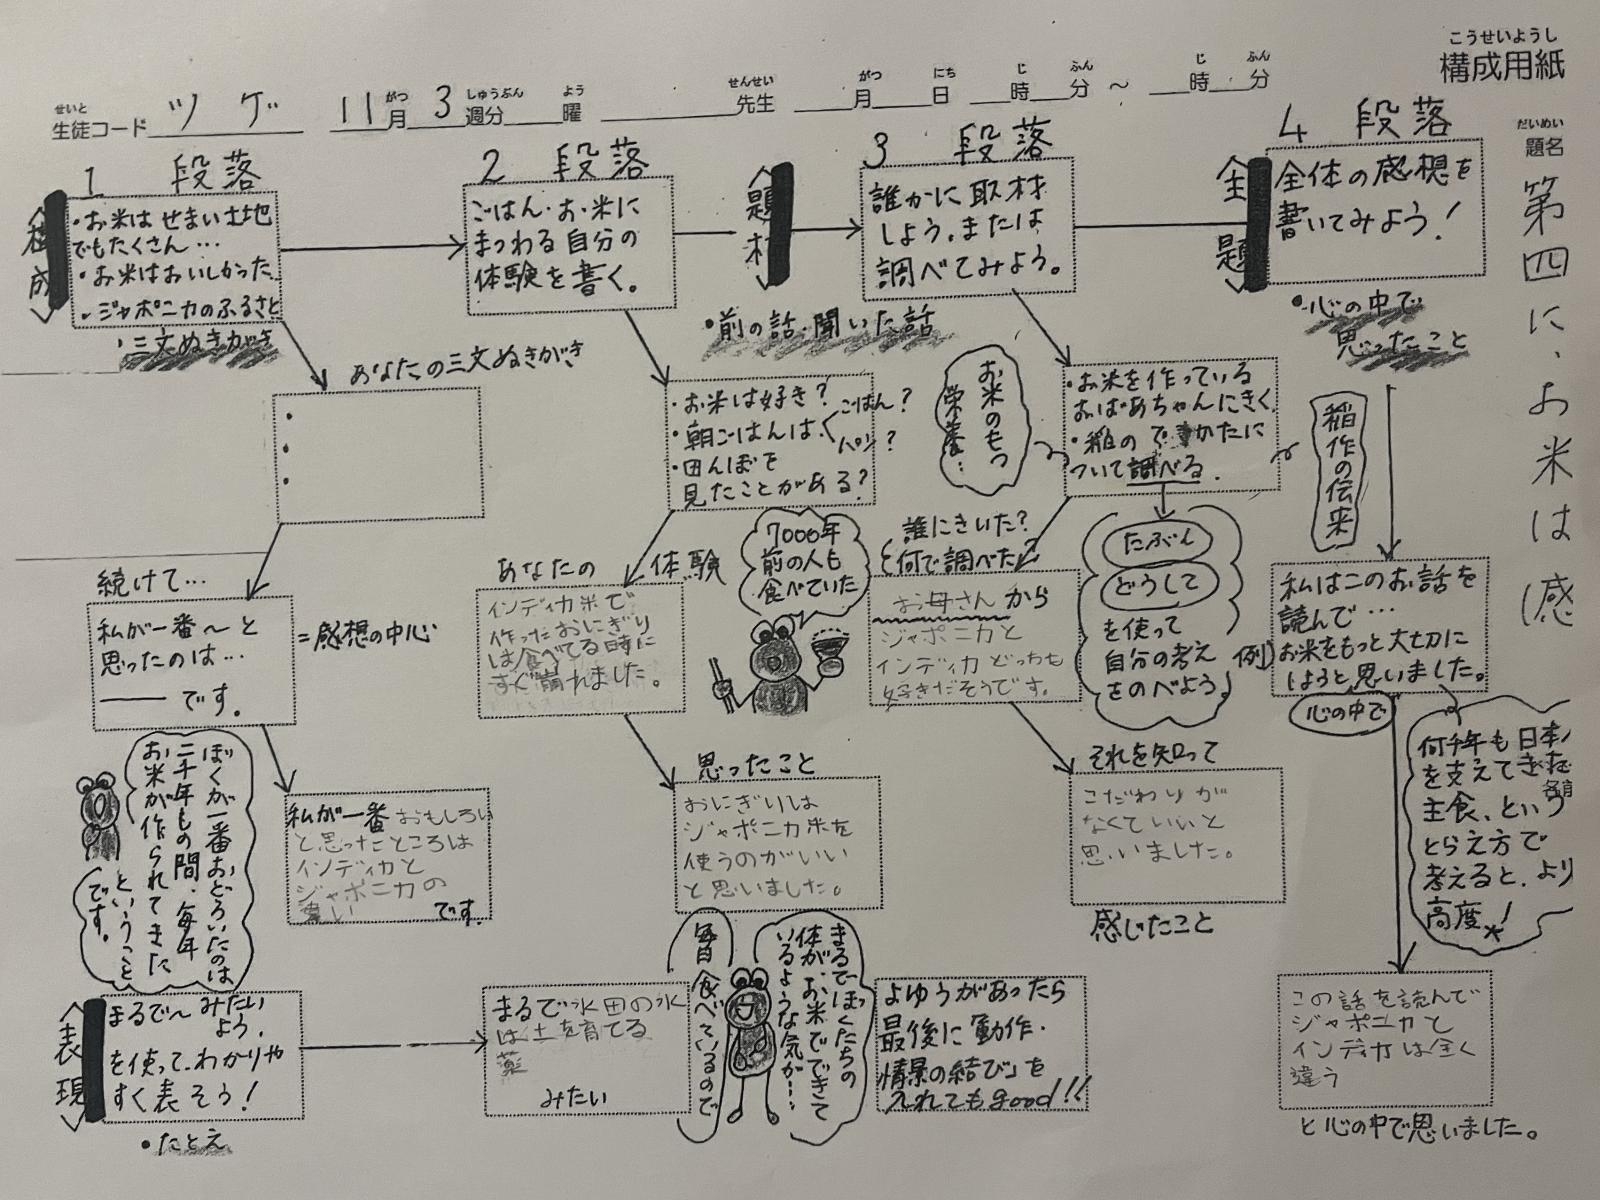 こうせいようし
構成用紙
せいと
生徒コード ツゲ 11月 がつ 3週分 しゅうぶん 曜 よう 先生 せんせい 月 がつ 日 にち 時 じ 分 ふん ～ 時 じ 分 ふん
だいめい
題名
第四に、お米は(感
1 段落
<構成>
・お米は せまい土地
でもたくさん…
・お米はおいしかった
・ジャポニカのふるさと
・三文ぬきがき
あなたの三文ぬきがき
・
・
・
続けて…
私が一番～と
思ったのは…
── です。
=感想の中心
ぼくが一番おどろいたのは
二千年もの間、毎年
お米が作られてきた
ということ
です。
私が一番おもしろい
と思ったところは
インディカと
ジャポニカの
違い です。
<表現>
まるで～みたい
よう。
を使って、わかりや
すく表そう!
・たとえ
まるで水田の水
は土を育てる
薬
みたい
2 段落
ごはん・お米に
まつわる自分の
体験を書く。
・お米は好き?
・朝ごはんは、ごはん?
パン?
・田んぼを
見たことがある?
あなたの 体験
インディカ米で
作ったおにぎり
は食べてる時に
すぐ崩れました。
7000年
前の人も
食べていた
思ったこと
おにぎりは
ジャポニカ米を
使うのがいい
と思いました。
毎日食べているので
まるでぼくたちの
体が、お米でできて
いるような気が…
<題材>
・前の話・聞いた話
3 段落
誰かに取材
しよう。または
調べてみよう。
お米のもつ
栄養…
・お米を作っている
おばあちゃんにきく
・稲の できかたに
ついて調べる.
稲作の伝来
たぶん
どうして
を使って
自分の考え
をのべよう。
誰にきいた?
何で調べた?
お母さんから
ジャポニカと
インディカどっちも
好きだそうです。
それを知って
こだわりが
なくていいと
思いました。
感じたこと
よゆうがあったら
最後に「動作・
情景の結び」を
入れてもgood!!
<主題>
4 段落
全体の感想を
書いてみよう!
・心の中で
思ったこと
例)
私はこのお話を
読んで…
お米をもっと大切に
しようと思いました。
心の中で
何千年も日本
を支えてき
主食、という
とらえ方で
考えると、より
高度!
この話を読んで
ジャポニカと
インディカは全く
違う
と心の中で思いました。